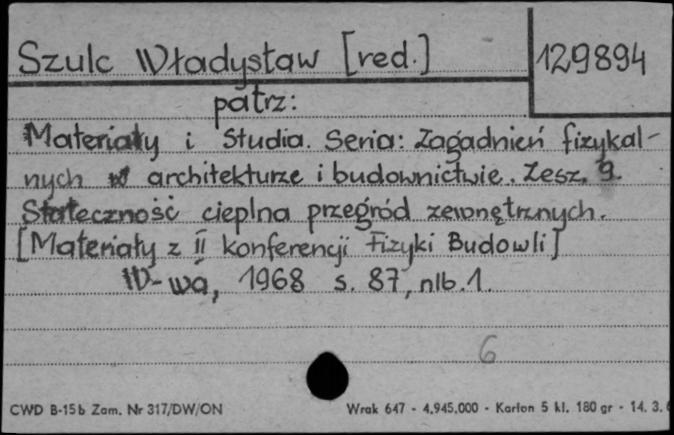 Szulc Władysław [red.]
129894
patrz:
Materiały i Studia. Seria: Zagadnień fizykal-
nych w architekturze i budownictwie. Zesz. 9.
Stateczność cieplna przegród zewnętrznych.
[Materiały z II konferencji Fizyki Budowli]
W-wa, 1968 s. 87, nlb. 1.
6
CWD B-15b Zam. Nr 317/DW/ON
Wrak 647 - 4.945.000 - Karton 5 kl. 180 gr - 14. 3.